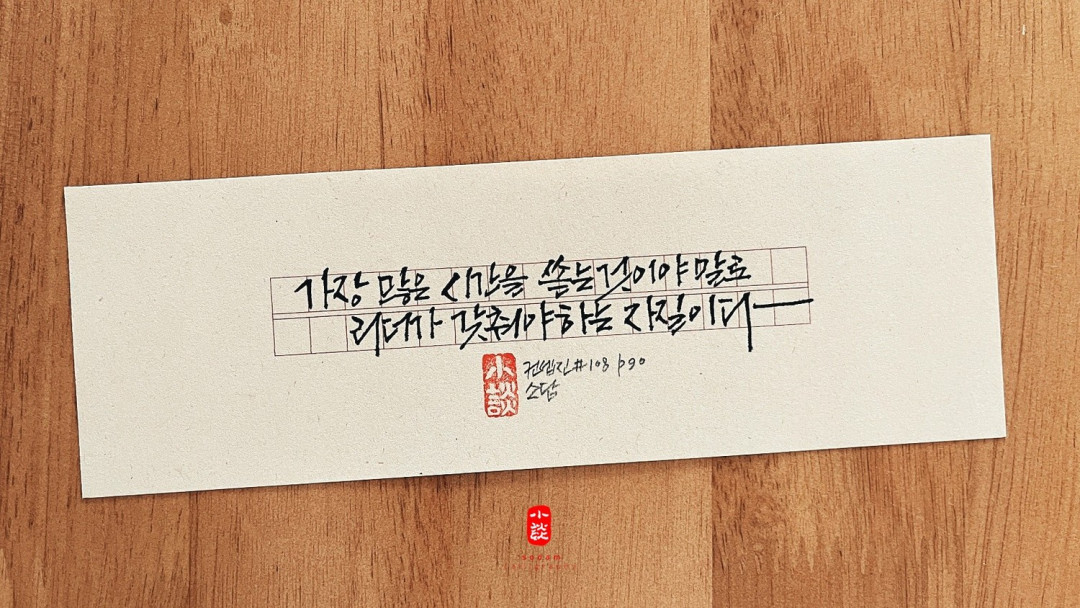 가장 많은 시간을 쏟는 것이야 말로
리더가 갖춰야 하는 자질이다
小談
컨셉진 #108 p90
소담
小談
sodam